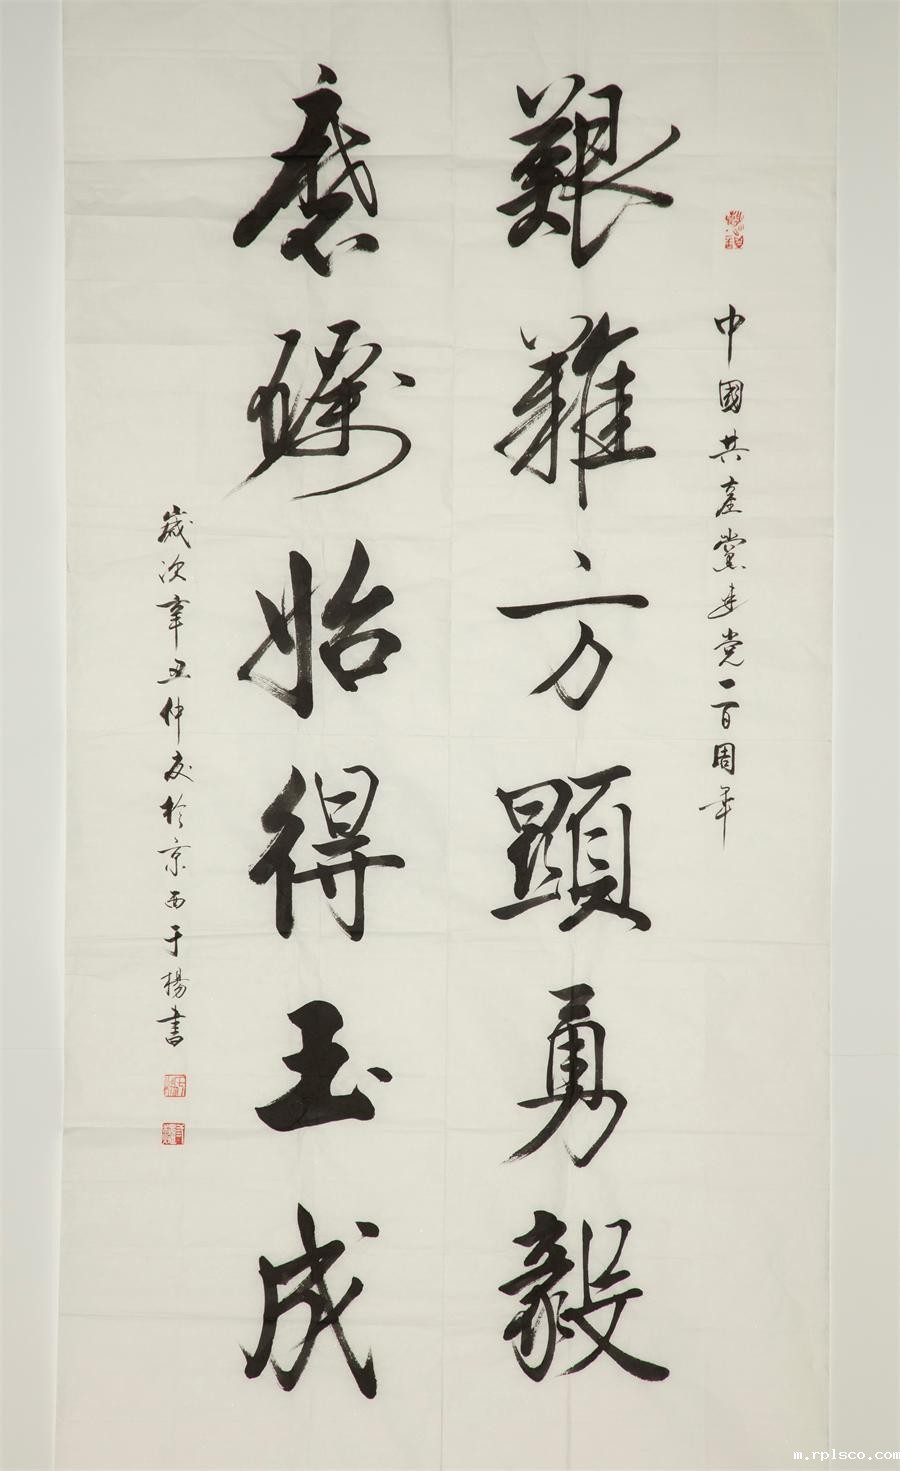 中國共產黨建党一百周年
艱難方顯勇毅
磨礪始得玉成
歲次辛丑仲夏於京西于楊書
m.rplsco.com